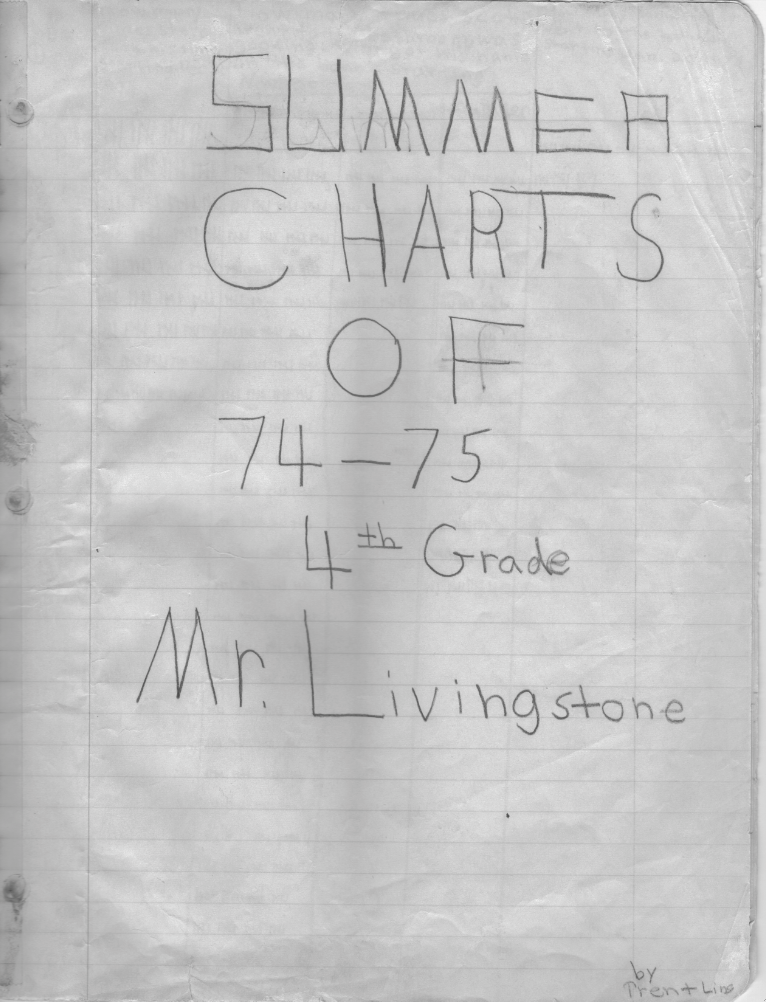 SUMMER
CHARTS
OF
74-75
4th Grade
Mr. Livingstone
by
Prent